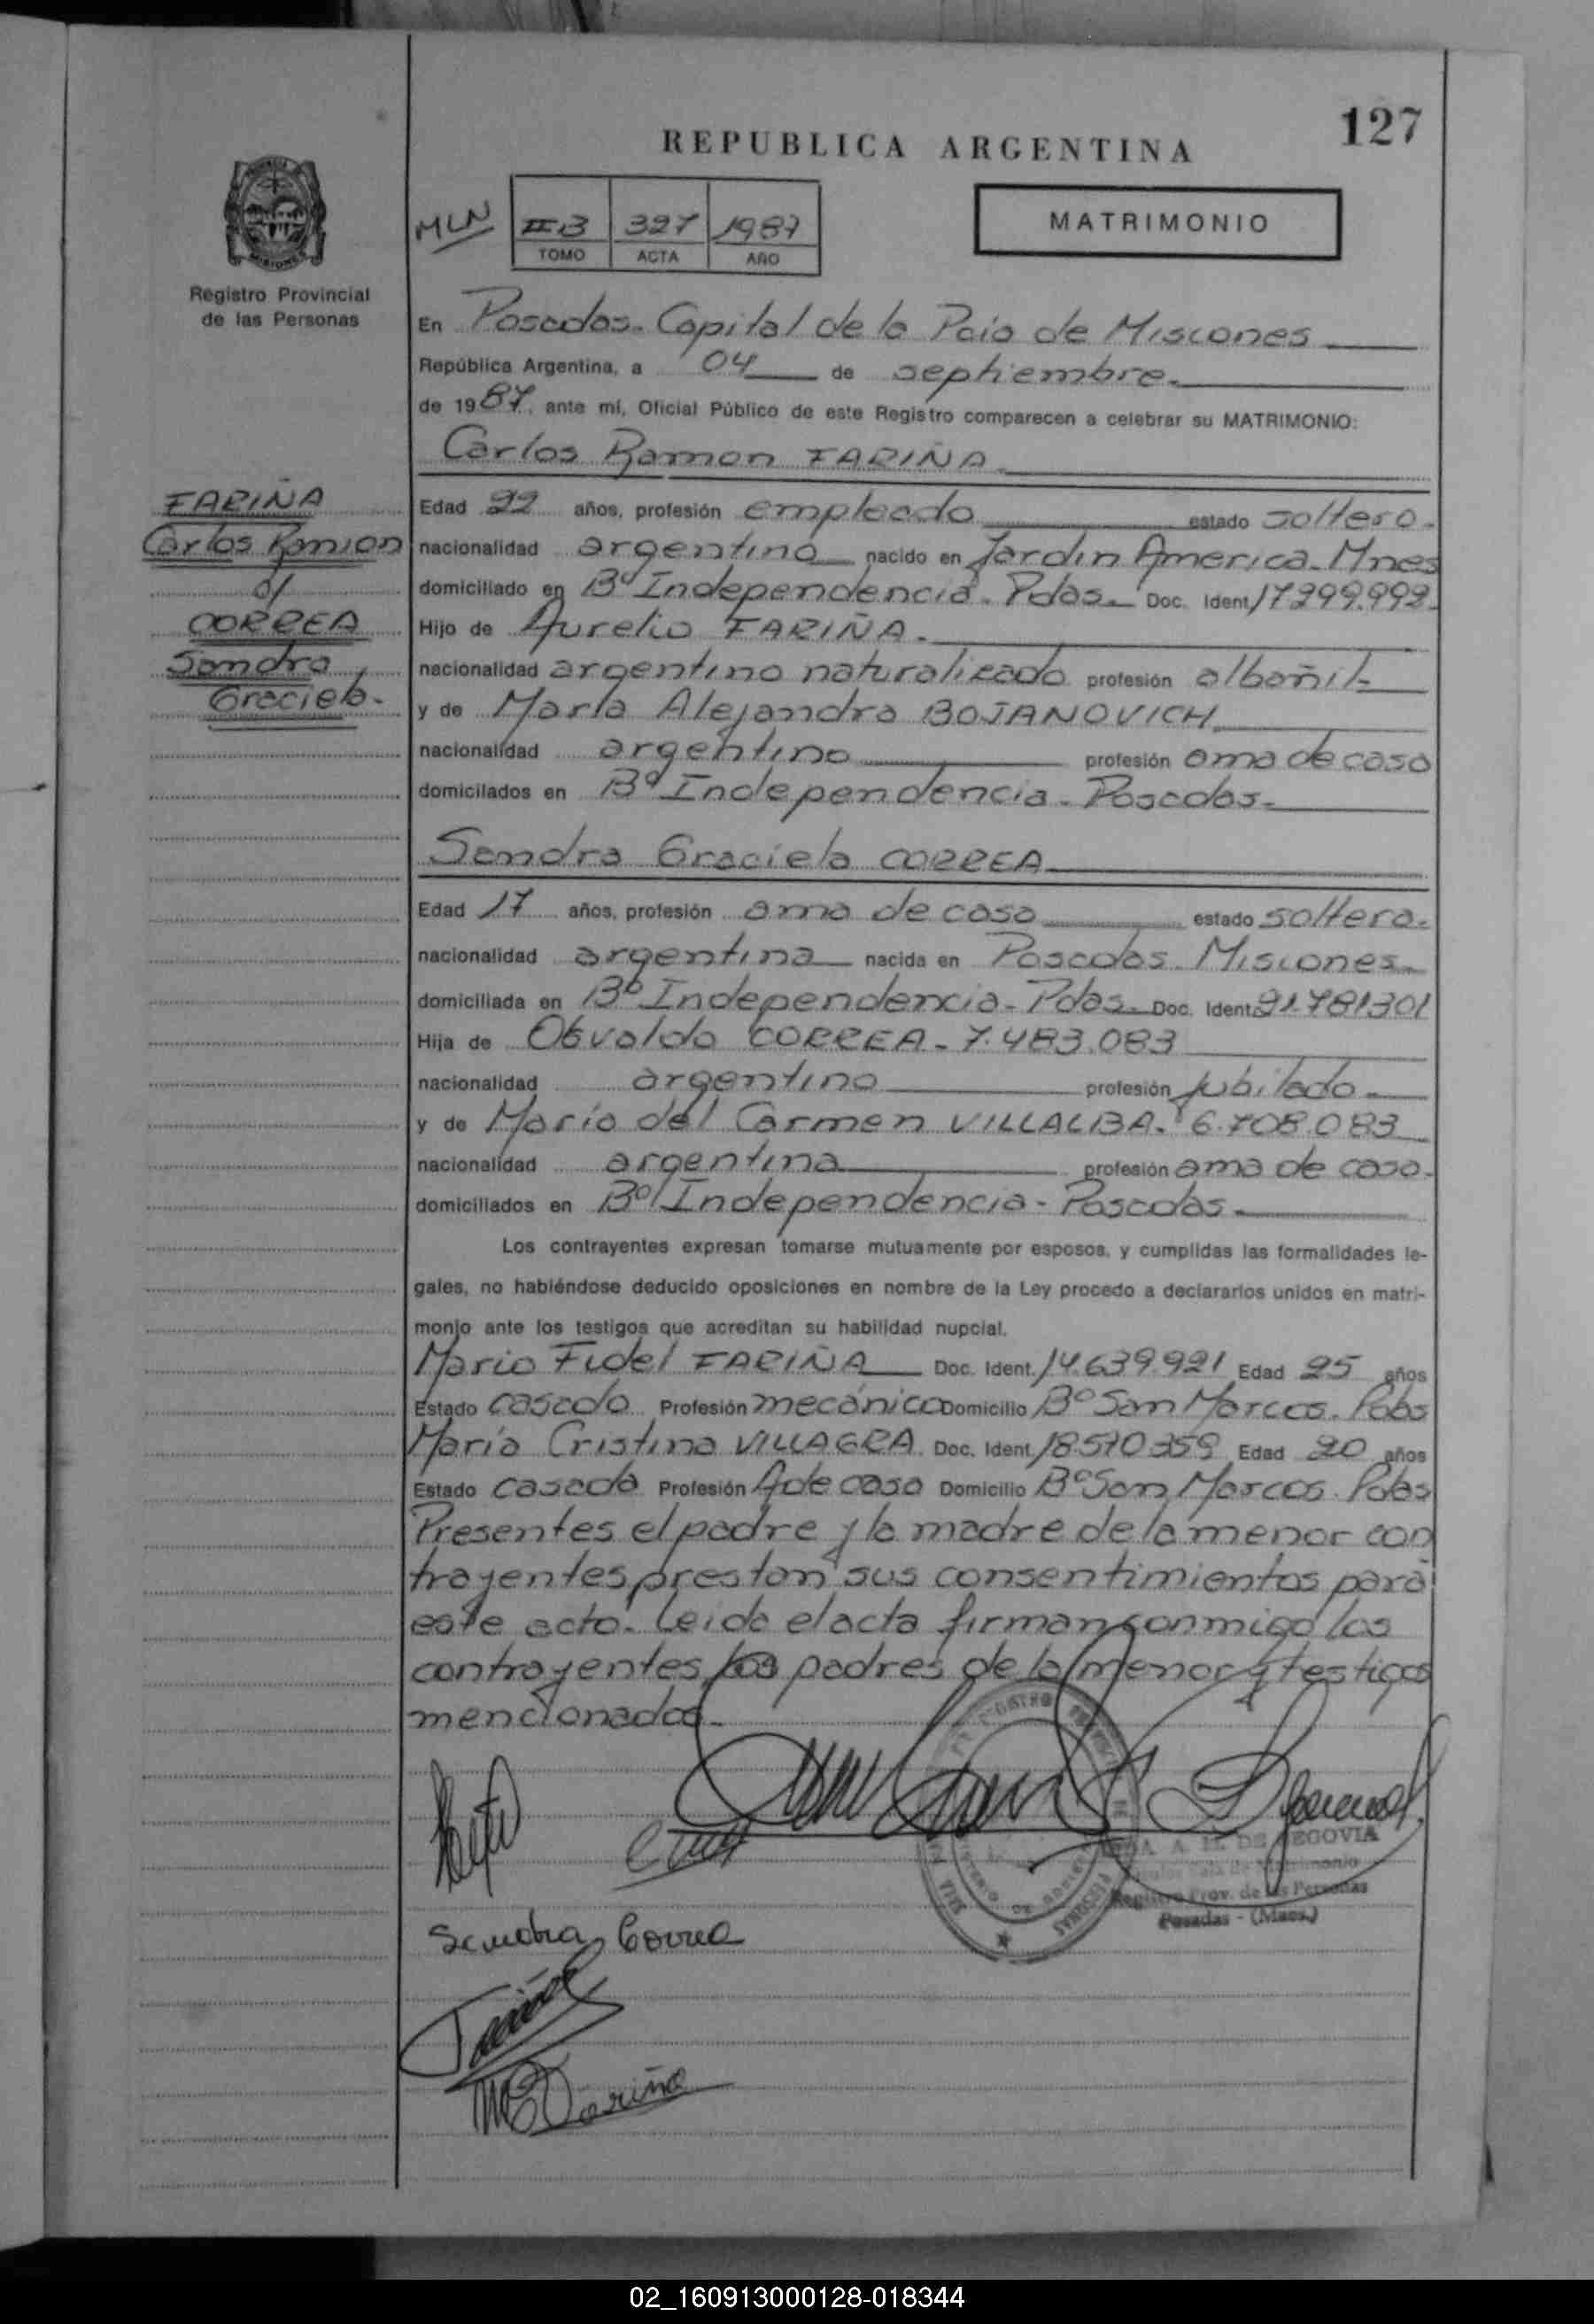 127
REPUBLICA ARGENTINA
MLN
II-B 327 1987
TOMO ACTA AÑO
MATRIMONIO
Registro Provincial
de las Personas
En Posadas. Capital de la Pcia de Misiones
República Argentina, a 04 de septiembre.
de 1987, ante mí, Oficial Público de este Registro comparecen a celebrar su MATRIMONIO:
Carlos Ramon FARIÑA
FARIÑA
Carlos Ramon
c/
CORREA
Sandra
Graciela.
Edad 22 años, profesión empleado estado soltero.
nacionalidad argentino nacido en Jardin America. Mnes
domiciliado en Bº Independencia. Pdas. Doc. Ident. 17299.992.
Hijo de Aurelio FARIÑA.
nacionalidad argentino naturalizado profesión albañil.
y de María Alejandra BOJANOVICH
nacionalidad argentina profesión ama de casa
domicilados en Bº Independencia. Posadas.
Sandra Graciela CORREA
Edad 17 años, profesión ama de casa estado soltera.
nacionalidad argentina nacida en Posadas. Misiones
domiciliada en Bº Independencia. Pdas. Doc. Ident. 21.781301
Hija de Osvaldo CORREA. 7.483.083
nacionalidad argentino profesión jubilado.
y de María del Carmen VILLALBA. 6.708.083
nacionalidad argentina profesión ama de casa.
domiciliados en Bº Independencia - Posadas.
Los contrayentes expresan tomarse mutuamente por esposos, y cumplidas las formalidades le-
gales, no habiéndose deducido oposiciones en nombre de la Ley procedo a declararlos unidos en matri-
monio ante los testigos que acreditan su habilidad nupcial.
Mario Fidel FARIÑA Doc. Ident. 14.639.921 Edad 25 años
Estado casado Profesión mecánico Domicilio Bº San Marcos. Pdas
María Cristina VILLAGRA Doc. Ident. 18.570.359 Edad 20 años
Estado casada Profesión A de casa Domicilio Bº San Marcos. Pdas
Presentes el padre y la madre de la menor con
trayentes prestan sus consentimientos para
este acto. Leida el acta firman conmigo los
contrayentes, los padres de la menor y testigos
mencionados.
DE SEGOVIA
Registro Prov. de las Personas
Posadas - (Mnes.)
Sandra Correa
M Fariña
02_160913000128-018344